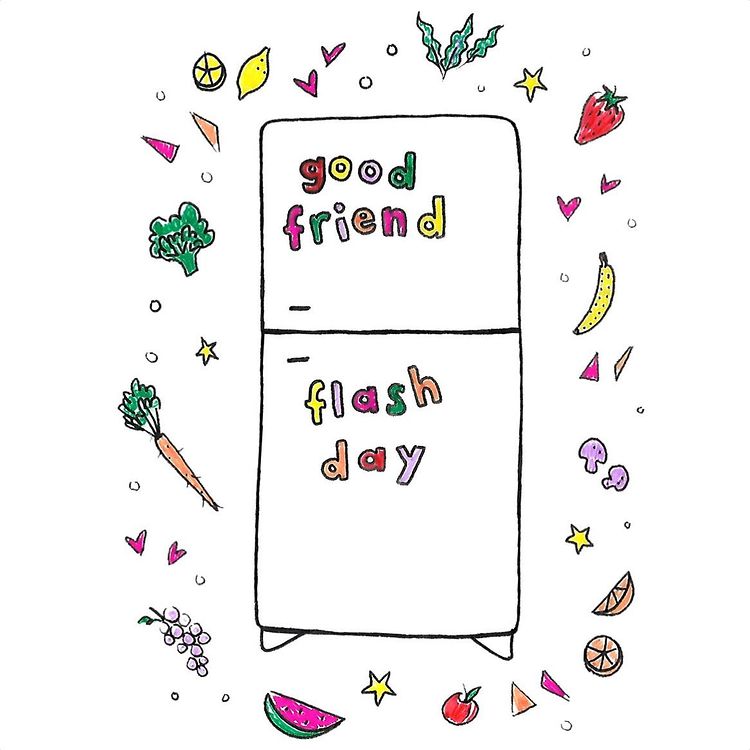 good
friend
flash
day